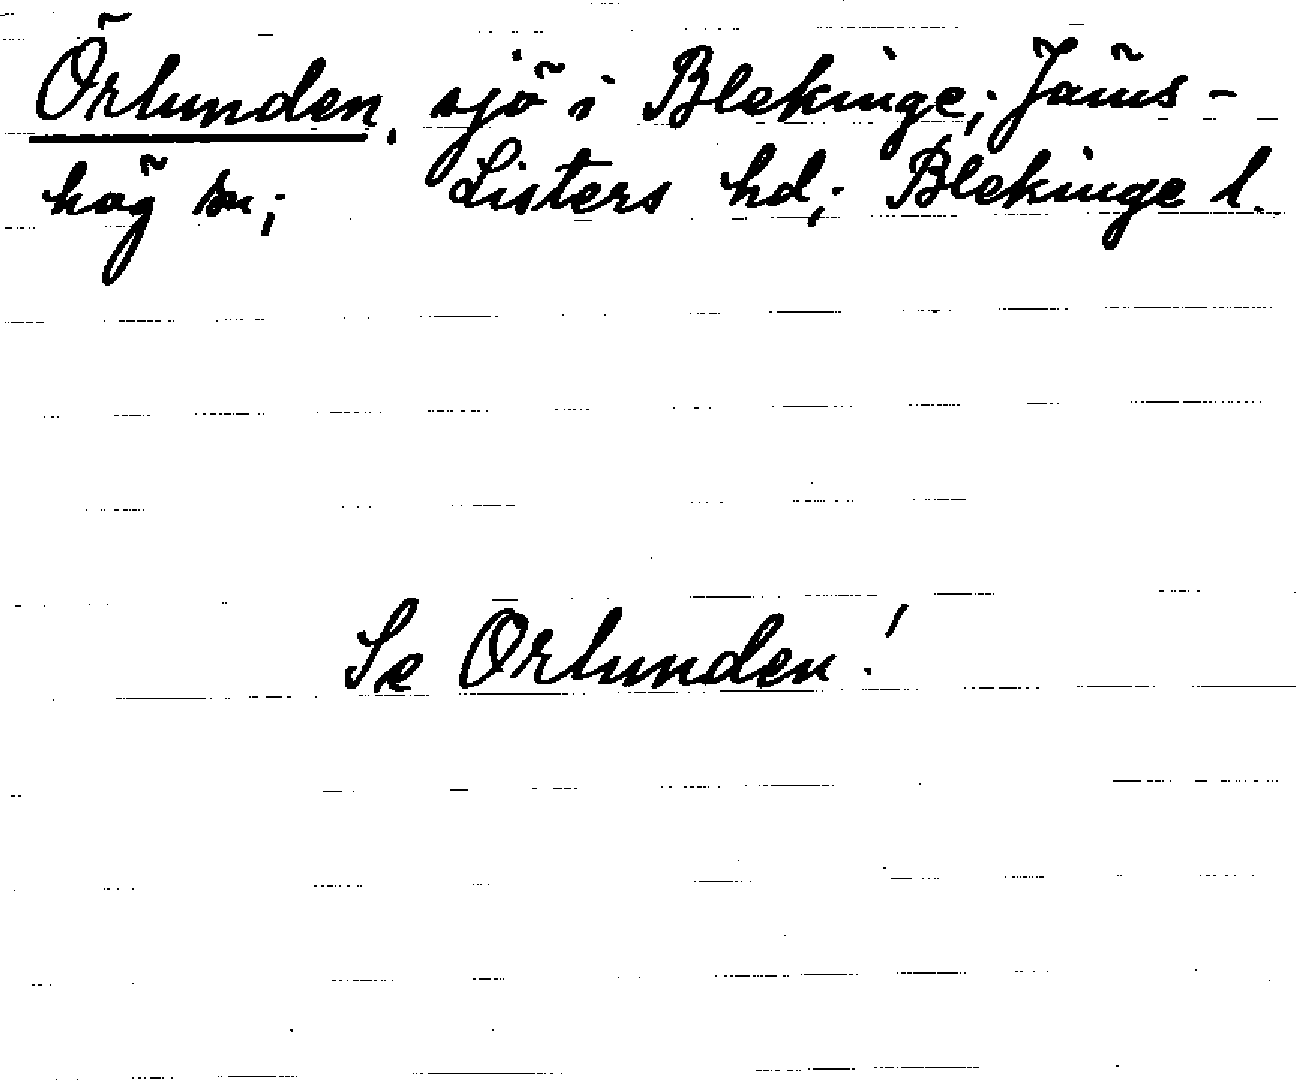 Örlunden, sjö i Blekinge; Jäms-
hög sn; Listers hd; Blekinge l.
Se Orlunden!